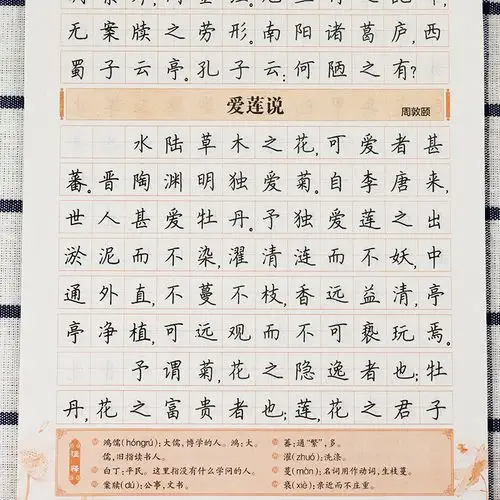 无案牍之劳形。南阳诸葛庐，西
蜀子云亭。孔子云：何陋之有？
爱莲说
周敦颐
水陆草木之花，可爱者甚
蕃。晋陶渊明独爱菊。自李唐来，
世人甚爱牡丹。予独爱莲之出
淤泥而不染，濯清涟而不妖，中
通外直，不蔓不枝，香远益清，亭
亭净植，可远观而不可亵玩焉。
予谓菊，花之隐逸者也；牡
丹，花之富贵者也；莲，花之君子
注释
鸿儒(hóngrú)：大儒，博学的人。鸿：大。
儒，旧指读书人。
白丁：平民。这里指没有什么学问的人。
案牍(dú)：公事，文书。
蕃：通“繁”，多。
濯(zhuó)：洗涤。
蔓(màn)：名词用作动词，生枝蔓。
亵(xiè)：亲近而不庄重。